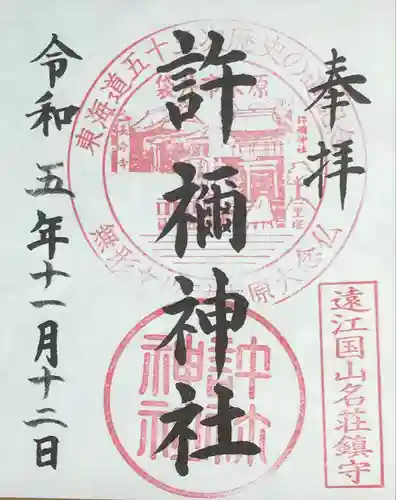 奉拝
許禰神社
令和五年十一月十二日
遠江国山名荘鎮守
東海道五十
歴史の
許禰神社
一里塚